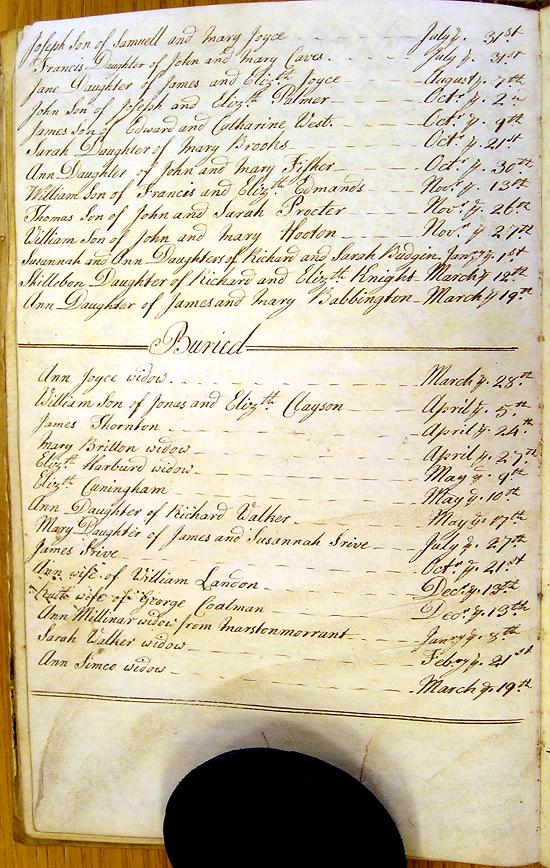 Joseph Son of Samuell and Mary Joyce July ye. 31st
Francis Daughter of John and Mary Caves July ye. 31st
Jane Daughter of James and Elizth Joyce August ye. 7th
John Son of Joseph and Elizth Palmer Octr ye. 2nd
James Son of Edward and Catharine West. Octr ye. 9th
Sarah Daughter of Mary Brooks Octr ye. 21st
Ann Daughter of John and Mary Fisher Octr ye. 30th
William Son of Francis and Elizth Edmands Novr ye. 13th
Thomas Son of John and Sarah Procter Novr ye. 26th
William Son of John and Mary Hooton Novr ye. 27th
Susannah and Ann Daughters of Richard and Sarah Budgin Janry ye. 1st
Daughter of Richard and Elizth Knight March ye 12th
Ann Daughter of James and Mary Babbington March ye 19th
Buried
Ann Joyce widow March ye. 28th
William Son of Jonas and Elizth Clayson April ye. 5th
James Thornton April ye. 24th
Mary Britton widow April ye. 27th
Elizth Harburd widow May ye. 9th
Elizth Caningham May ye. 10th
Ann Daughter of Richard Walker May ye. 17th
Mary Daughter of James and Susannah Frive July ye. 27th
James Frive Octr ye. 21st
Ann wife of William Landon Decr ye. 13th
Ruth wife of George Coalman Decr ye. 13th
Ann Millinar widow from Marstonmorrant Janry ye. 8th
Sarah Walker widow Febry ye. 21st
Ann Simco widow March ye. 19th